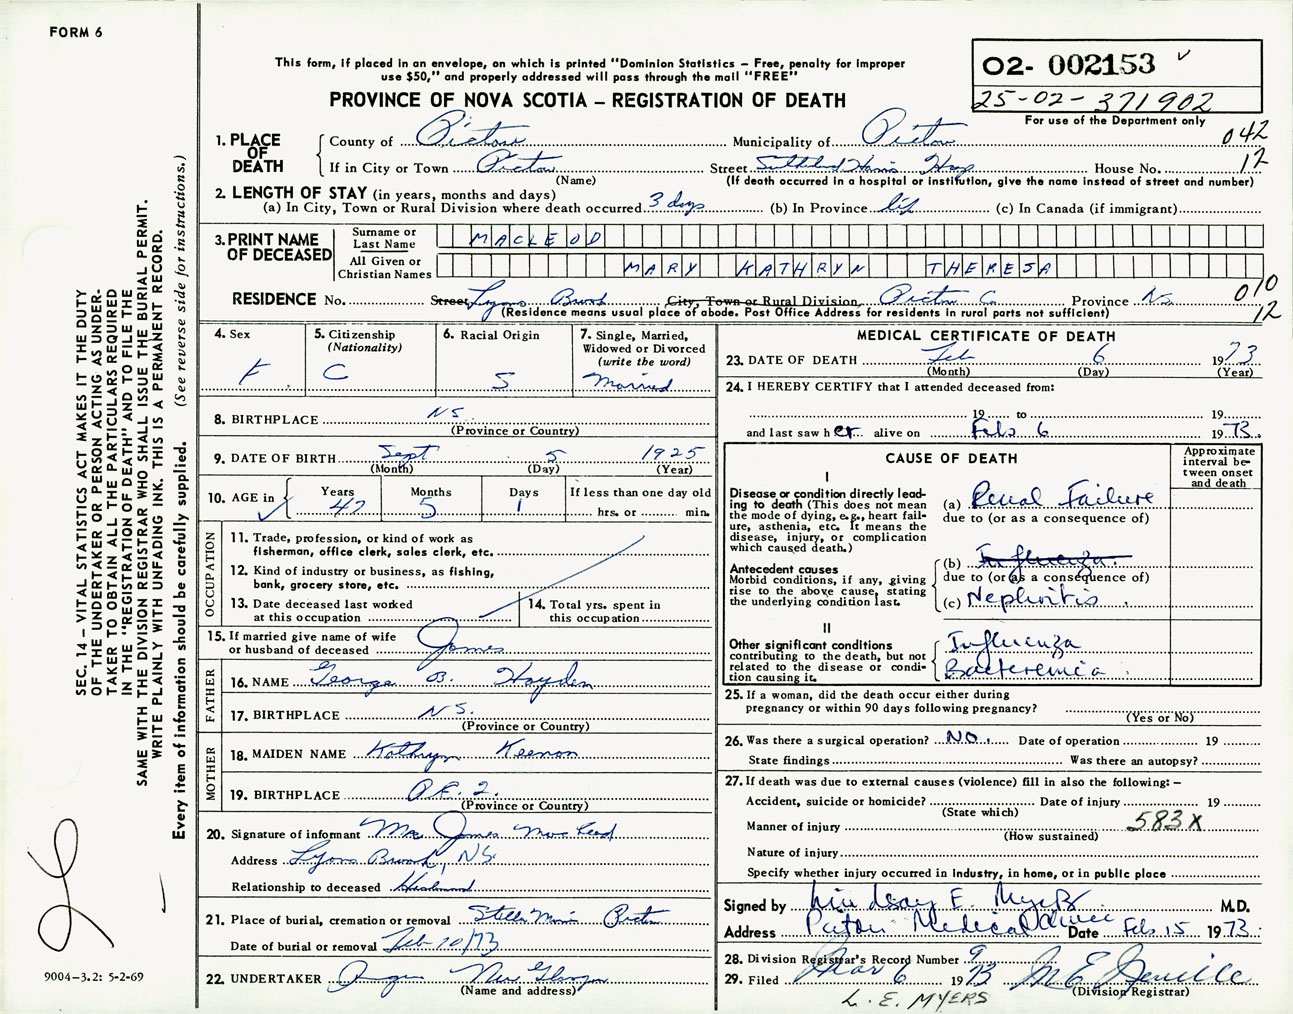 FORM 6
This form, if placed in an envelope, on which is printed "Dominion Statistics – Free, penalty for improper
use $50," and properly addressed will pass through the mail "FREE"
PROVINCE OF NOVA SCOTIA – REGISTRATION OF DEATH
O2- 002153
25-02-371902
For use of the Department only
042
12
1. PLACE OF DEATH
County of Pictou Municipality of Pictou
If in City or Town Pictou Street Sutherland Harris Hosp House No.
(Name) (If death occurred in a hospital or institution, give the name instead of street and number)
2. LENGTH OF STAY (in years, months and days)
(a) In City, Town or Rural Division where death occurred 3 days (b) In Province life (c) In Canada (if immigrant)
3. PRINT NAME OF DECEASED
Surname or Last Name MACLEOD
All Given or Christian Names MARY KATHRYN THERESA
RESIDENCE No. Street Lyons Brook City, Town or Rural Division Pictou Co Province N.S.
(Residence means usual place of abode. Post Office Address for residents in rural parts not sufficient)
010
12
4. Sex F
5. Citizenship (Nationality) C
6. Racial Origin S
7. Single, Married, Widowed or Divorced (write the word) Married
8. BIRTHPLACE NS
(Province or Country)
9. DATE OF BIRTH Sept 5 1925
(Month) (Day) (Year)
10. AGE in Years 47 Months 5 Days 1 If less than one day old hrs. or min.
OCCUPATION
11. Trade, profession, or kind of work as
fisherman, office clerk, sales clerk, etc.
12. Kind of industry or business, as fishing,
bank, grocery store, etc.
13. Date deceased last worked
at this occupation
14. Total yrs. spent in
this occupation
15. If married give name of wife
or husband of deceased James
FATHER
16. NAME George B. Hayden
17. BIRTHPLACE N.S.
(Province or Country)
MOTHER
18. MAIDEN NAME Kathryn Keenan
19. BIRTHPLACE P.E.I.
(Province or Country)
20. Signature of informant Mr James MacLeod
Address Lyons Brook, NS.
Relationship to deceased Husband
21. Place of burial, cremation or removal Stella Maris Pictou
Date of burial or removal Feb 10/73
22. UNDERTAKER New Glasgow
(Name and address)
MEDICAL CERTIFICATE OF DEATH
23. DATE OF DEATH Feb 6 1973
(Month) (Day) (Year)
24. I HEREBY CERTIFY that I attended deceased from:
19 to 19
and last saw her alive on Feb 6 1973.
CAUSE OF DEATH
Approximate interval between onset and death
I
Disease or condition directly lead-
ing to death (This does not mean
the mode of dying, e.g., heart fail-
ure, asthenia, etc. It means the
disease, injury, or complication
which caused death.)
(a) Renal Failure
due to (or as a consequence of)
Antecedent causes
Morbid conditions, if any, giving
rise to the above cause, stating
the underlying condition last.
(b) Influenza.
due to (or as a consequence of)
(c) Nephritis.
II
Other significant conditions
contributing to the death, but not
related to the disease or condi-
tion causing it.
Influenza
Bacteremia.
25. If a woman, did the death occur either during
pregnancy or within 90 days following pregnancy?
(Yes or No)
26. Was there a surgical operation? NO. Date of operation 19
State findings Was there an autopsy?
27. If death was due to external causes (violence) fill in also the following: –
Accident, suicide or homicide? Date of injury 19
(State which)
Manner of injury 583X
(How sustained)
Nature of injury
Specify whether injury occurred in industry, in home, or in public place
Signed by Lindsay E. Myers M.D.
Address Pictou Medical Clinic Date Feb 15 1973.
28. Division Registrar's Record Number 9
29. Filed Mar 6 1973
(Division Registrar)
L. E. MYERS
SEC. 14 – VITAL STATISTICS ACT MAKES IT THE DUTY
OF THE UNDERTAKER OR PERSON ACTING AS UNDER-
TAKER TO OBTAIN ALL THE PARTICULARS REQUIRED
IN THE "REGISTRATION OF DEATH" AND TO FILE THE
SAME WITH THE DIVISION REGISTRAR WHO SHALL ISSUE THE BURIAL PERMIT.
WRITE PLAINLY WITH UNFADING INK. THIS IS A PERMANENT RECORD.
Every item of information should be carefully supplied. (See reverse side for instructions.)
9004-3.2: 5-2-69